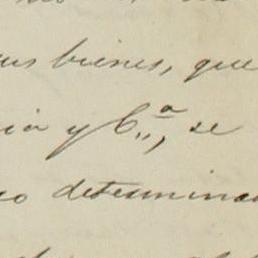 us bienes, que
ia y C.ª, se
o determina